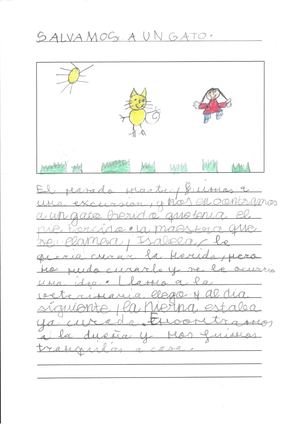 SALVAMOS A UN GATO.
El pasado martes, fuimos a
una excursion, y nos encontramos
a un gato herido que tenia el
pie herido. la maestra que
se llama, Isabela, le
queria curar la herida, pero
no pudo curarlo y se le ocurrio
una idea. Llamo a la
veterinaria llego y al dia
siguiente, la pierna estaba
ya curada. Encontramos
a la dueña y nos fuimos
tranquilos a casa.